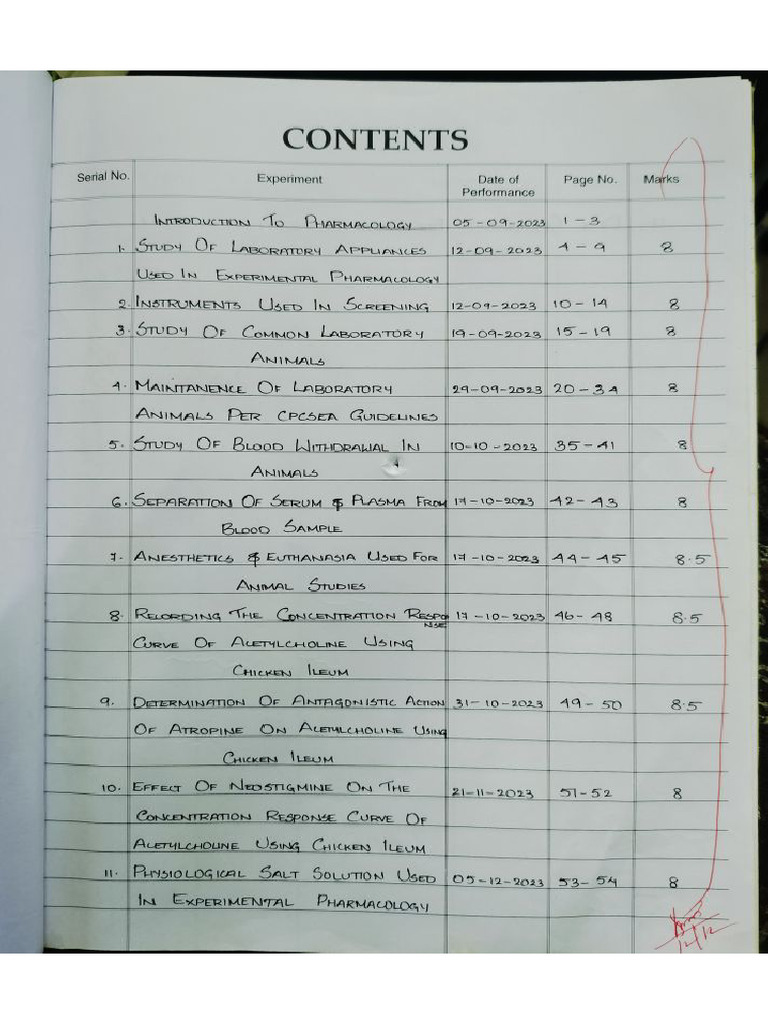 CONTENTS
Serial No. Experiment Date of Performance Page No. Marks
INTRODUCTION TO PHARMACOLOGY 05-09-2023 1-3
1. STUDY OF LABORATORY APPLIANCES 12-09-2023 4-9 8
USED IN EXPERIMENTAL PHARMACOLOGY
2. INSTRUMENTS USED IN SCREENING 12-09-2023 10-14 8
3. STUDY OF COMMON LABORATORY 19-09-2023 15-19 8
ANIMALS
4. MAINTANENCE OF LABORATORY 29-09-2023 20-34 8
ANIMALS PER CPCSEA GUIDELINES
5. STUDY OF BLOOD WITHDRAWAL IN 10-10-2023 35-41 8
ANIMALS
6. SEPARATION OF SERUM & PLASMA FROM 17-10-2023 42-43 8
BLOOD SAMPLE
7. ANESTHETICS & EUTHANASIA USED FOR 17-10-2023 44-45 8.5
ANIMAL STUDIES
8. RECORDING THE CONCENTRATION RESPONSE 17-10-2023 46-48 8.5
CURVE OF ACETYLCHOLINE USING
CHICKEN ILEUM
9. DETERMINATION OF ANTAGONISTIC ACTION 31-10-2023 49-50 8.5
OF ATROPINE ON ACETYLCHOLINE USING
CHICKEN ILEUM
10. EFFECT OF NEOSTIGMINE ON THE 21-11-2023 51-52 8
CONCENTRATION RESPONSE CURVE OF
ACETYLCHOLINE USING CHICKEN ILEUM
11. PHYSIOLOGICAL SALT SOLUTION USED 05-12-2023 53-54 8
IN EXPERIMENTAL PHARMACOLOGY
12/12